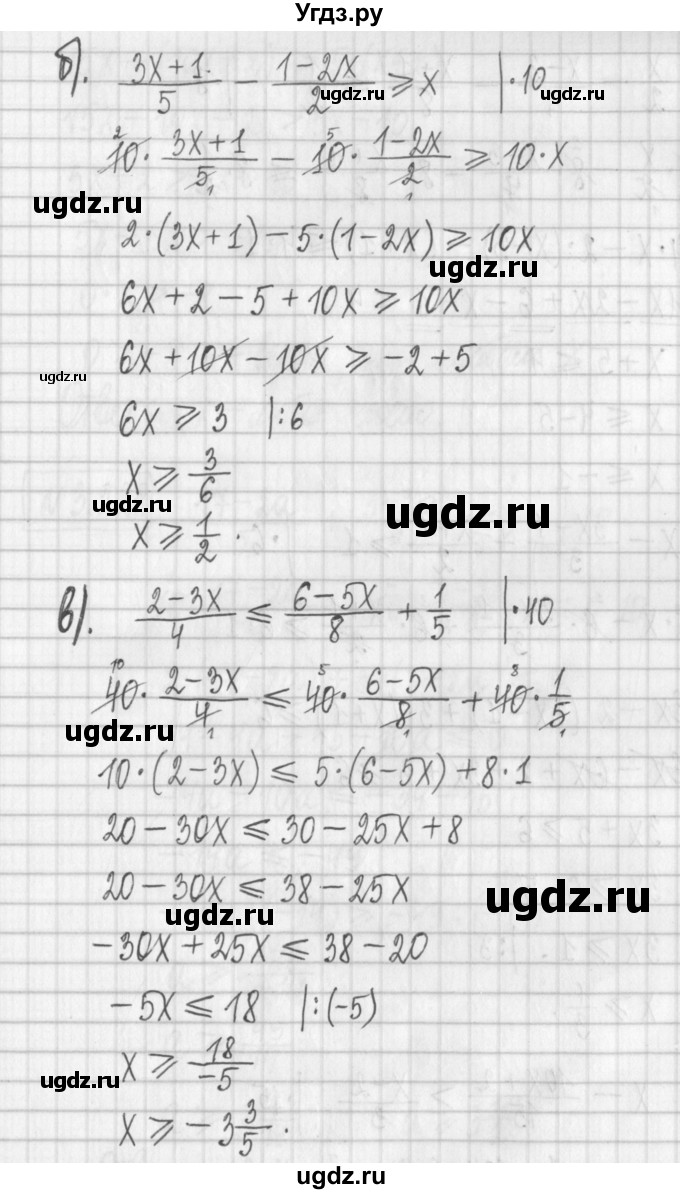 Угдз.ру
б). (3x+1)/5 − (1−2x)/2 ⩾ x |·10
ugdz.ru ugdz.ru
10· (3x+1)/5 − 10· (1−2x)/2 ⩾ 10·x
ugdz.ru
2·(3x+1)−5·(1−2x) ⩾ 10x
ugdz.ru
6x+2−5+10x ⩾ 10x
6x+10x−10x ⩾ −2+5
ugdz.ru
6x ⩾ 3 |:6
x ⩾ 3/6
ugdz.ru ugdz.ru
x ⩾ 1/2.
ugdz.ru
в). (2−3x)/4 ⩽ (6−5x)/8 + 1/5 |·40
40· (2−3x)/4 ⩽ 40· (6−5x)/8 + 40· 1/5
ugdz.ru
10·(2−3x) ⩽ 5·(6−5x)+8·1
20−30x ⩽ 30−25x+8
20−30x ⩽ 38−25x
ugdz.ru ugdz.ru
−30x+25x ⩽ 38−20
−5x ⩽ 18 |:(−5)
x ⩾ 18/−5
ugdz.ru ugdz.ru
x ⩾ −3 3/5.
ugdz.ru